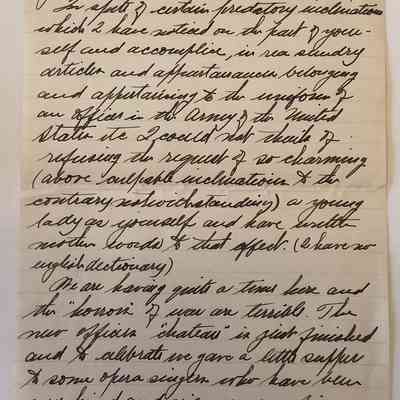 In spite of certain predatory inclinations
which I have noticed on the part of your-
self and accomplice, in rea sundry
articles and appurtanances belonging
and appertaining to the uniform of
an officer in the Army of the United
States etc I could not think of
refusing the request of so charming
(above culpable inclinations to the
contrary notwithstanding) a young
lady as yourself and have written
mother words to that effect. (I have no
english dictionary)
We are having quite a time here and
the "horrors" of war are terrible. The
new officers "chateau" is just finished
and to celebrate we gave a little supper
to some opera singers who have been